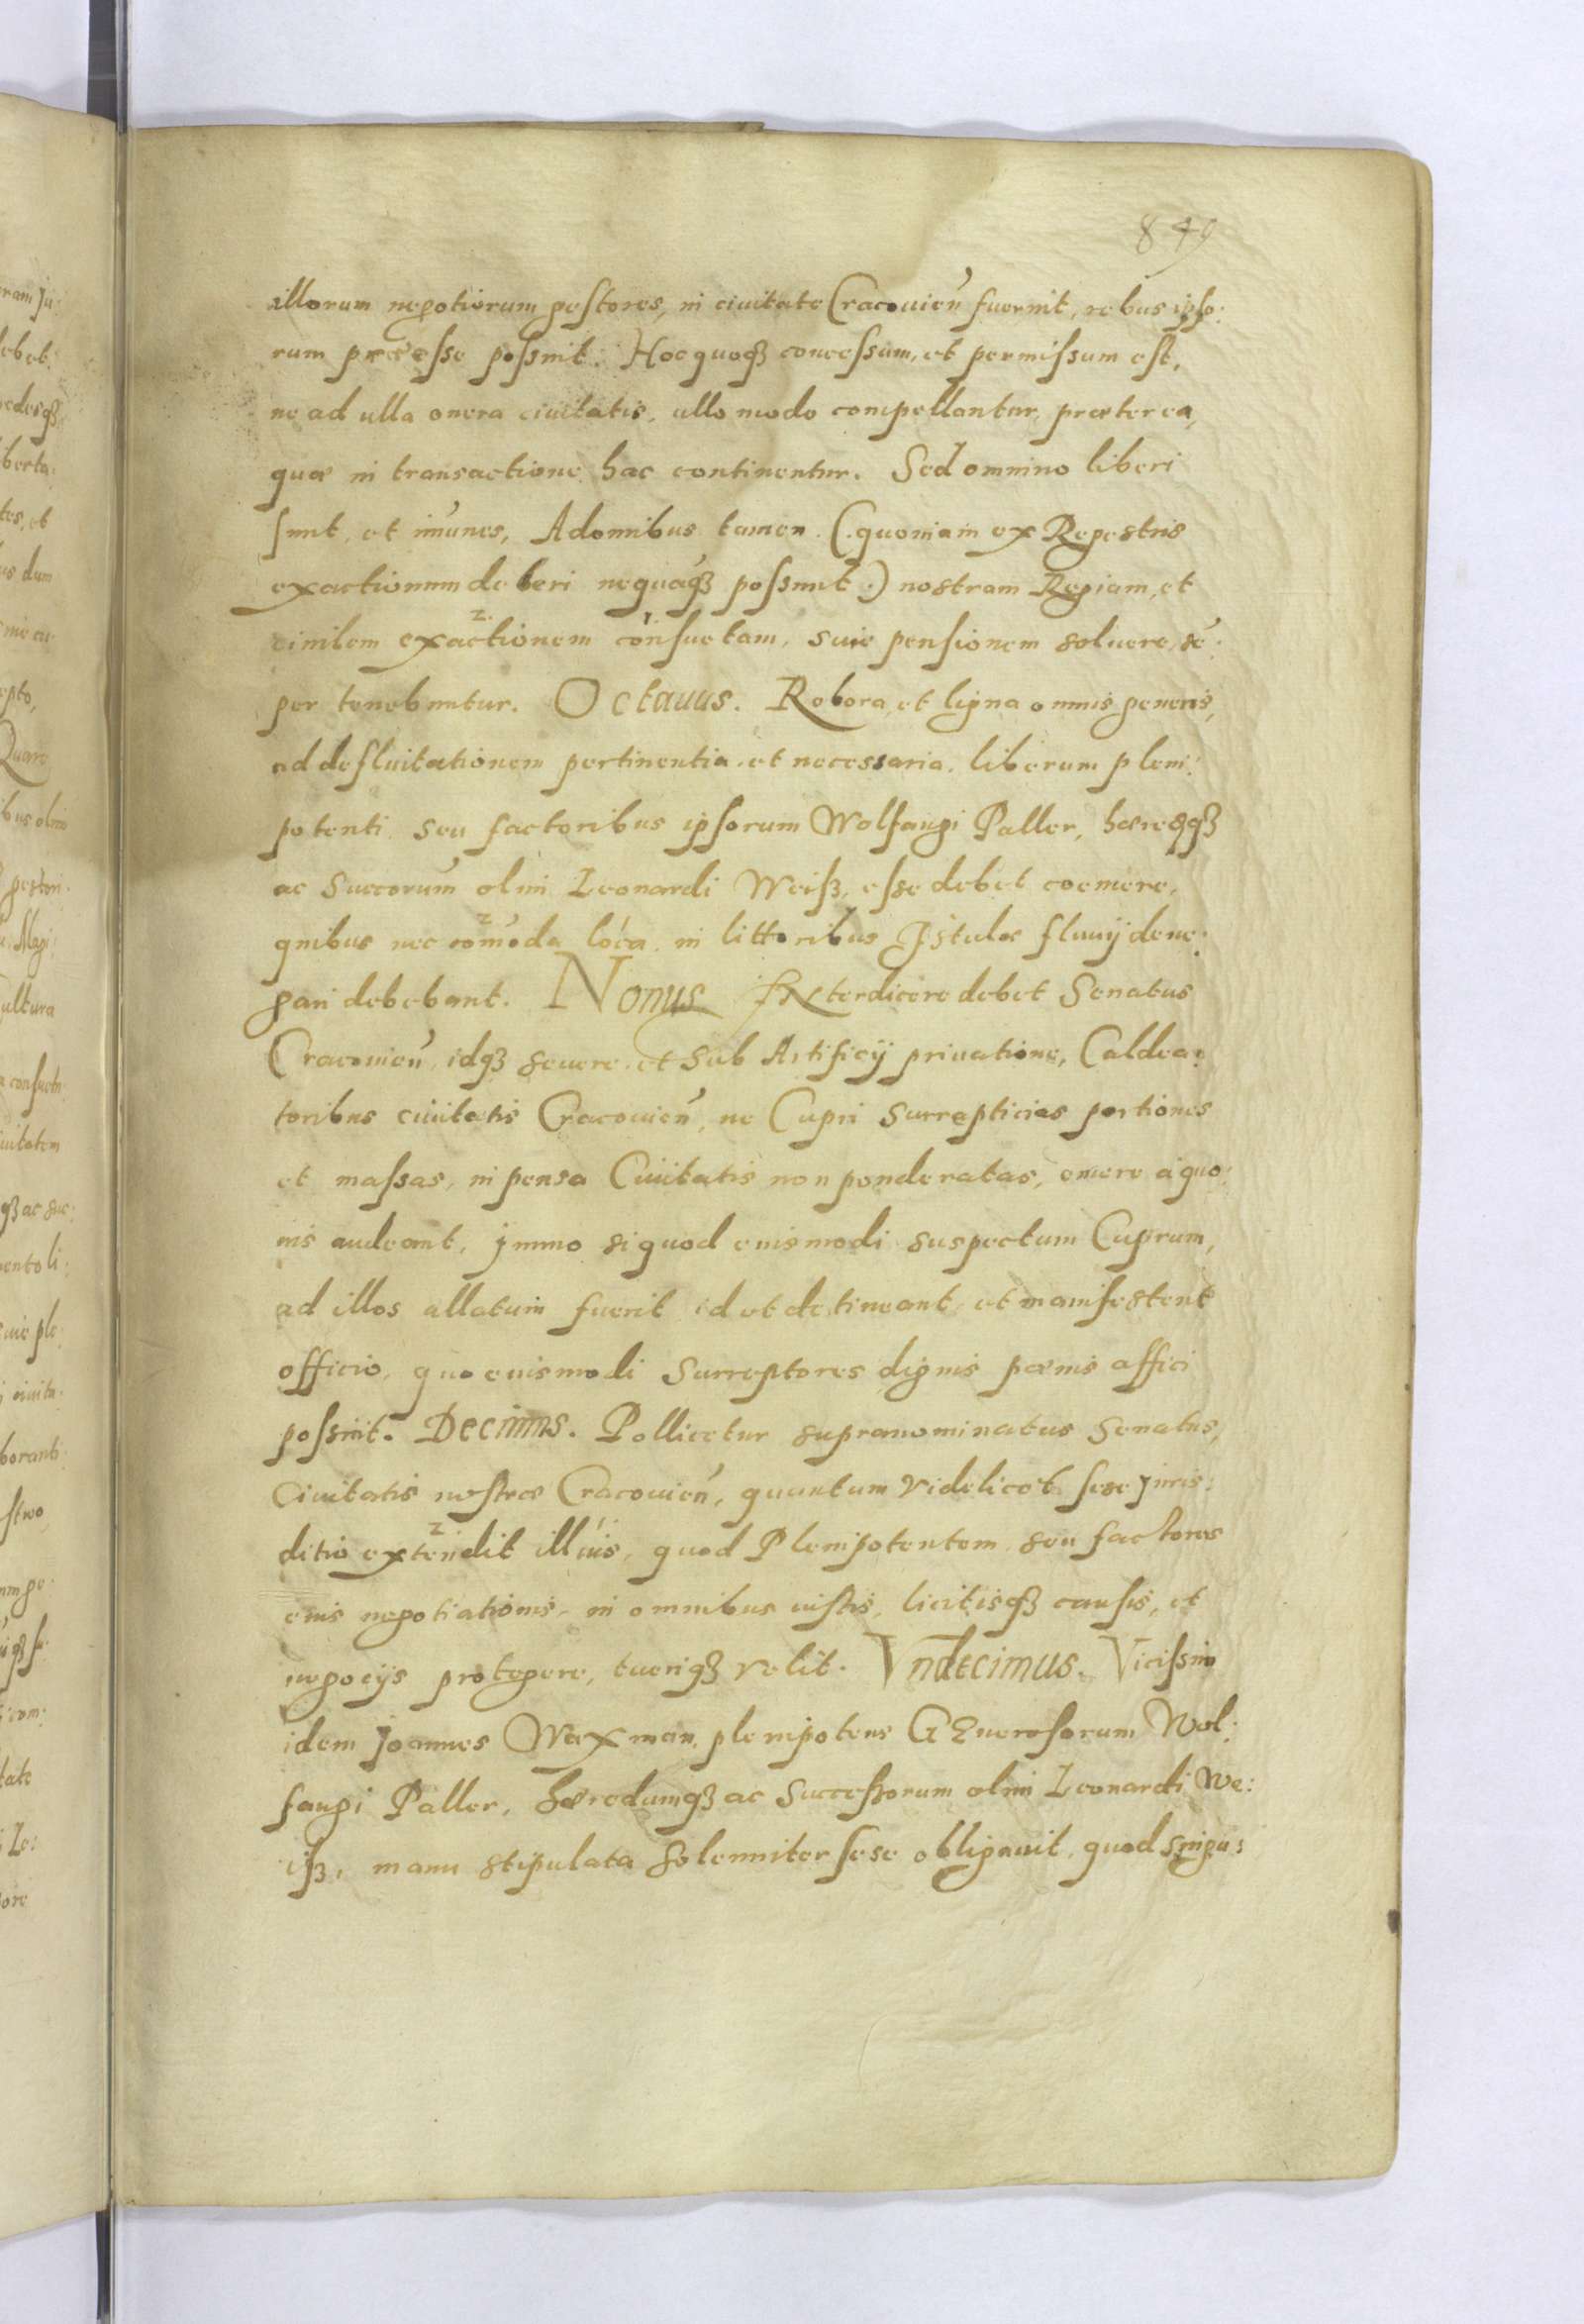 849
illorum negotiorum gestores, in ciuitate Cracouien̄ fuerint, rebus ipso:
rum præesse possint. Hoc quoqȝ concessum, et permissum est,
ne ad ulla onera ciuitatis, ullo modo compellantur, præter ea,
quæ in transactione hac continentur. Sed omnino liberi
sint, et im̄unes, A domibus tamen (: quoniam ex Regestris
exactionum deleri nequaqȝ possunt :) nostram Regiam, et
ciuilem exactionem consuetam, siue pensionem soluere, sē:
per tenebuntur. Octauus. Robora, et ligna omnis generis,
ad defluitationem pertinentia, et necessaria, liberum pleni:
potenti, seu factoribus ipsorum Wolfangi Paller, hæredqȝ
ac Succorum̄ olim Leonardi Weiß, esse debet coemere,
quibus nec com̄oda loca, in littoribus Istulæ fluuij dene:
gari debebant. Nonus INterdicere debet Senatus
Cracouien̄, idqȝ seuere, et sub Artificij priuatione, Caldea:
toribus ciuitatis Cracouien̄, ne Cupri surrepticias portiones
et massas, in pensa Ciuitatis non ponderatas, emere a quo:
uis audeant, immo si quod eiusmodi suspectum Cuprum,
ad illos allatum fuerit id et detineant, et manifestent
officio, quo eiusmodi Surreptores dignis pœnis affici
possint. Decimus. Pollicetur supranominatus Senatus,
Ciuitatis nostræ Cracouien̄, quantum videlicet sese Juris:
ditio extendit illius, quod Plenipotentem seu factores
eius negotiationis, in omnibus iustis, licitisqȝ causis, et
negocijs protegere, tueriqȝ velit. Vndecimus. Vicissim
idem Joannes Waxman, plenipotens GEnerosorum Wol:
fangi Paller, hæredumqȝ ac Successorum olim Leonardi We:
iß, manu stipulata solenniter sese obligauit, quod singu: